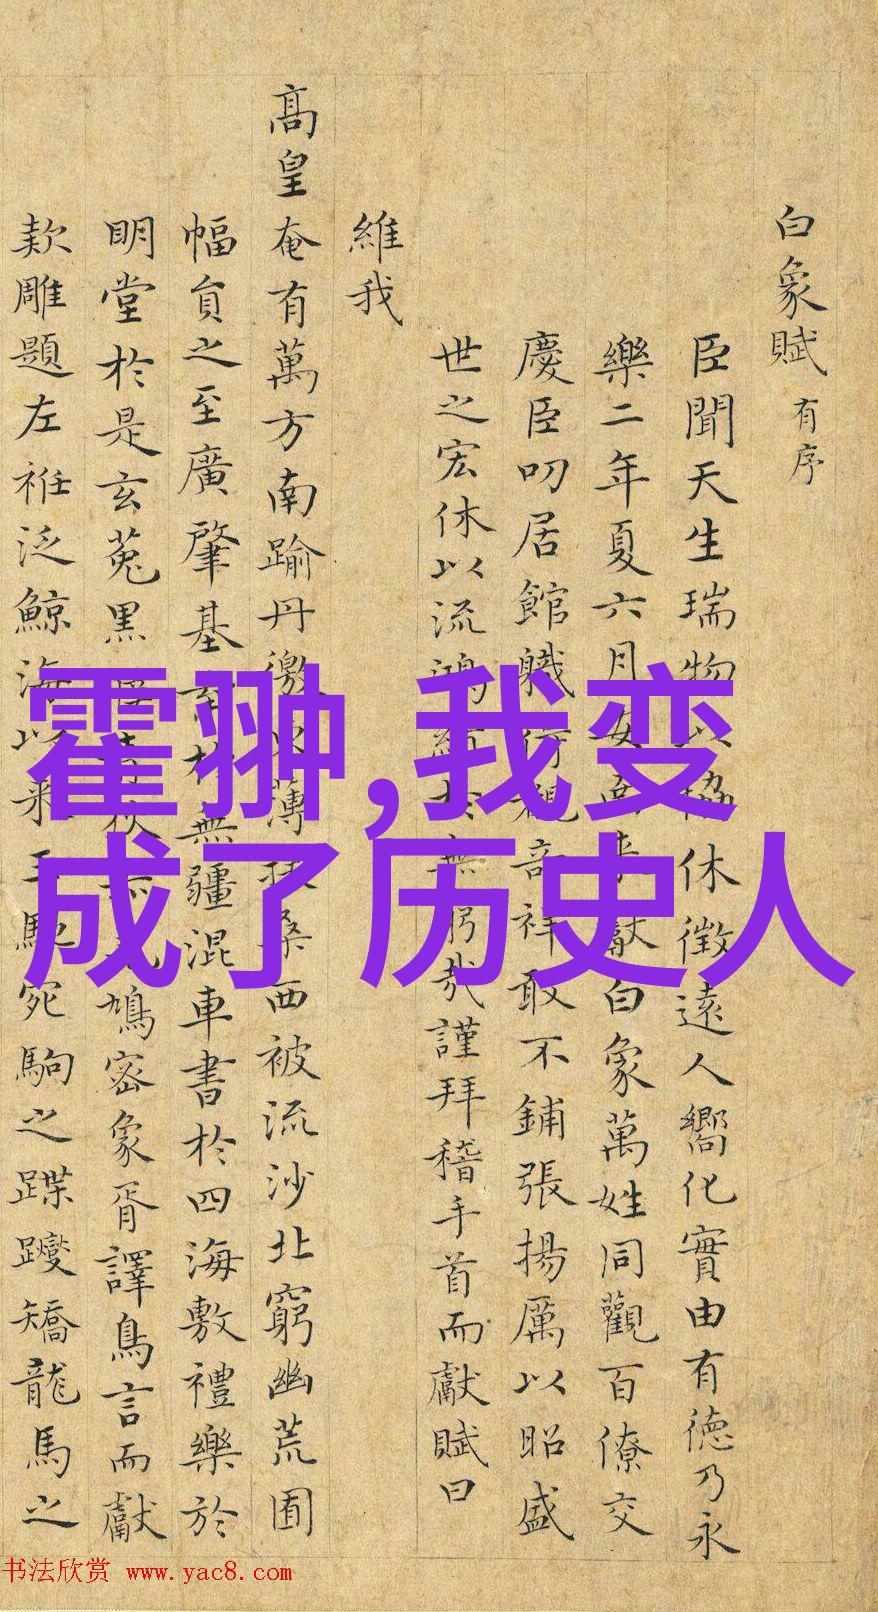 白象賦 有序
臣聞天生瑞物以協休徵遠人嚮化實由有德乃永
樂二年夏六月 來獻白象萬姓同觀百僚交
慶臣叨居館職 祥敢不鋪張揚厲以昭盛
世之宏休以流鴻 無窮哉謹拜稽手首而獻賦曰
維我
高皇奄有萬方南踰丹徼 薄扶桑西被流沙北窮幽荒圉
幅員之至廣肇基 無疆混車書於四海敷禮樂於
明堂於是玄菟黑 鳩密象胥譯鳥言而獻
款雕題左衽泛鯨海以來王 宛駒之蹀躞矯龍馬之
霍翀,我变
成了历史人
书法欣赏 www.yac8.com